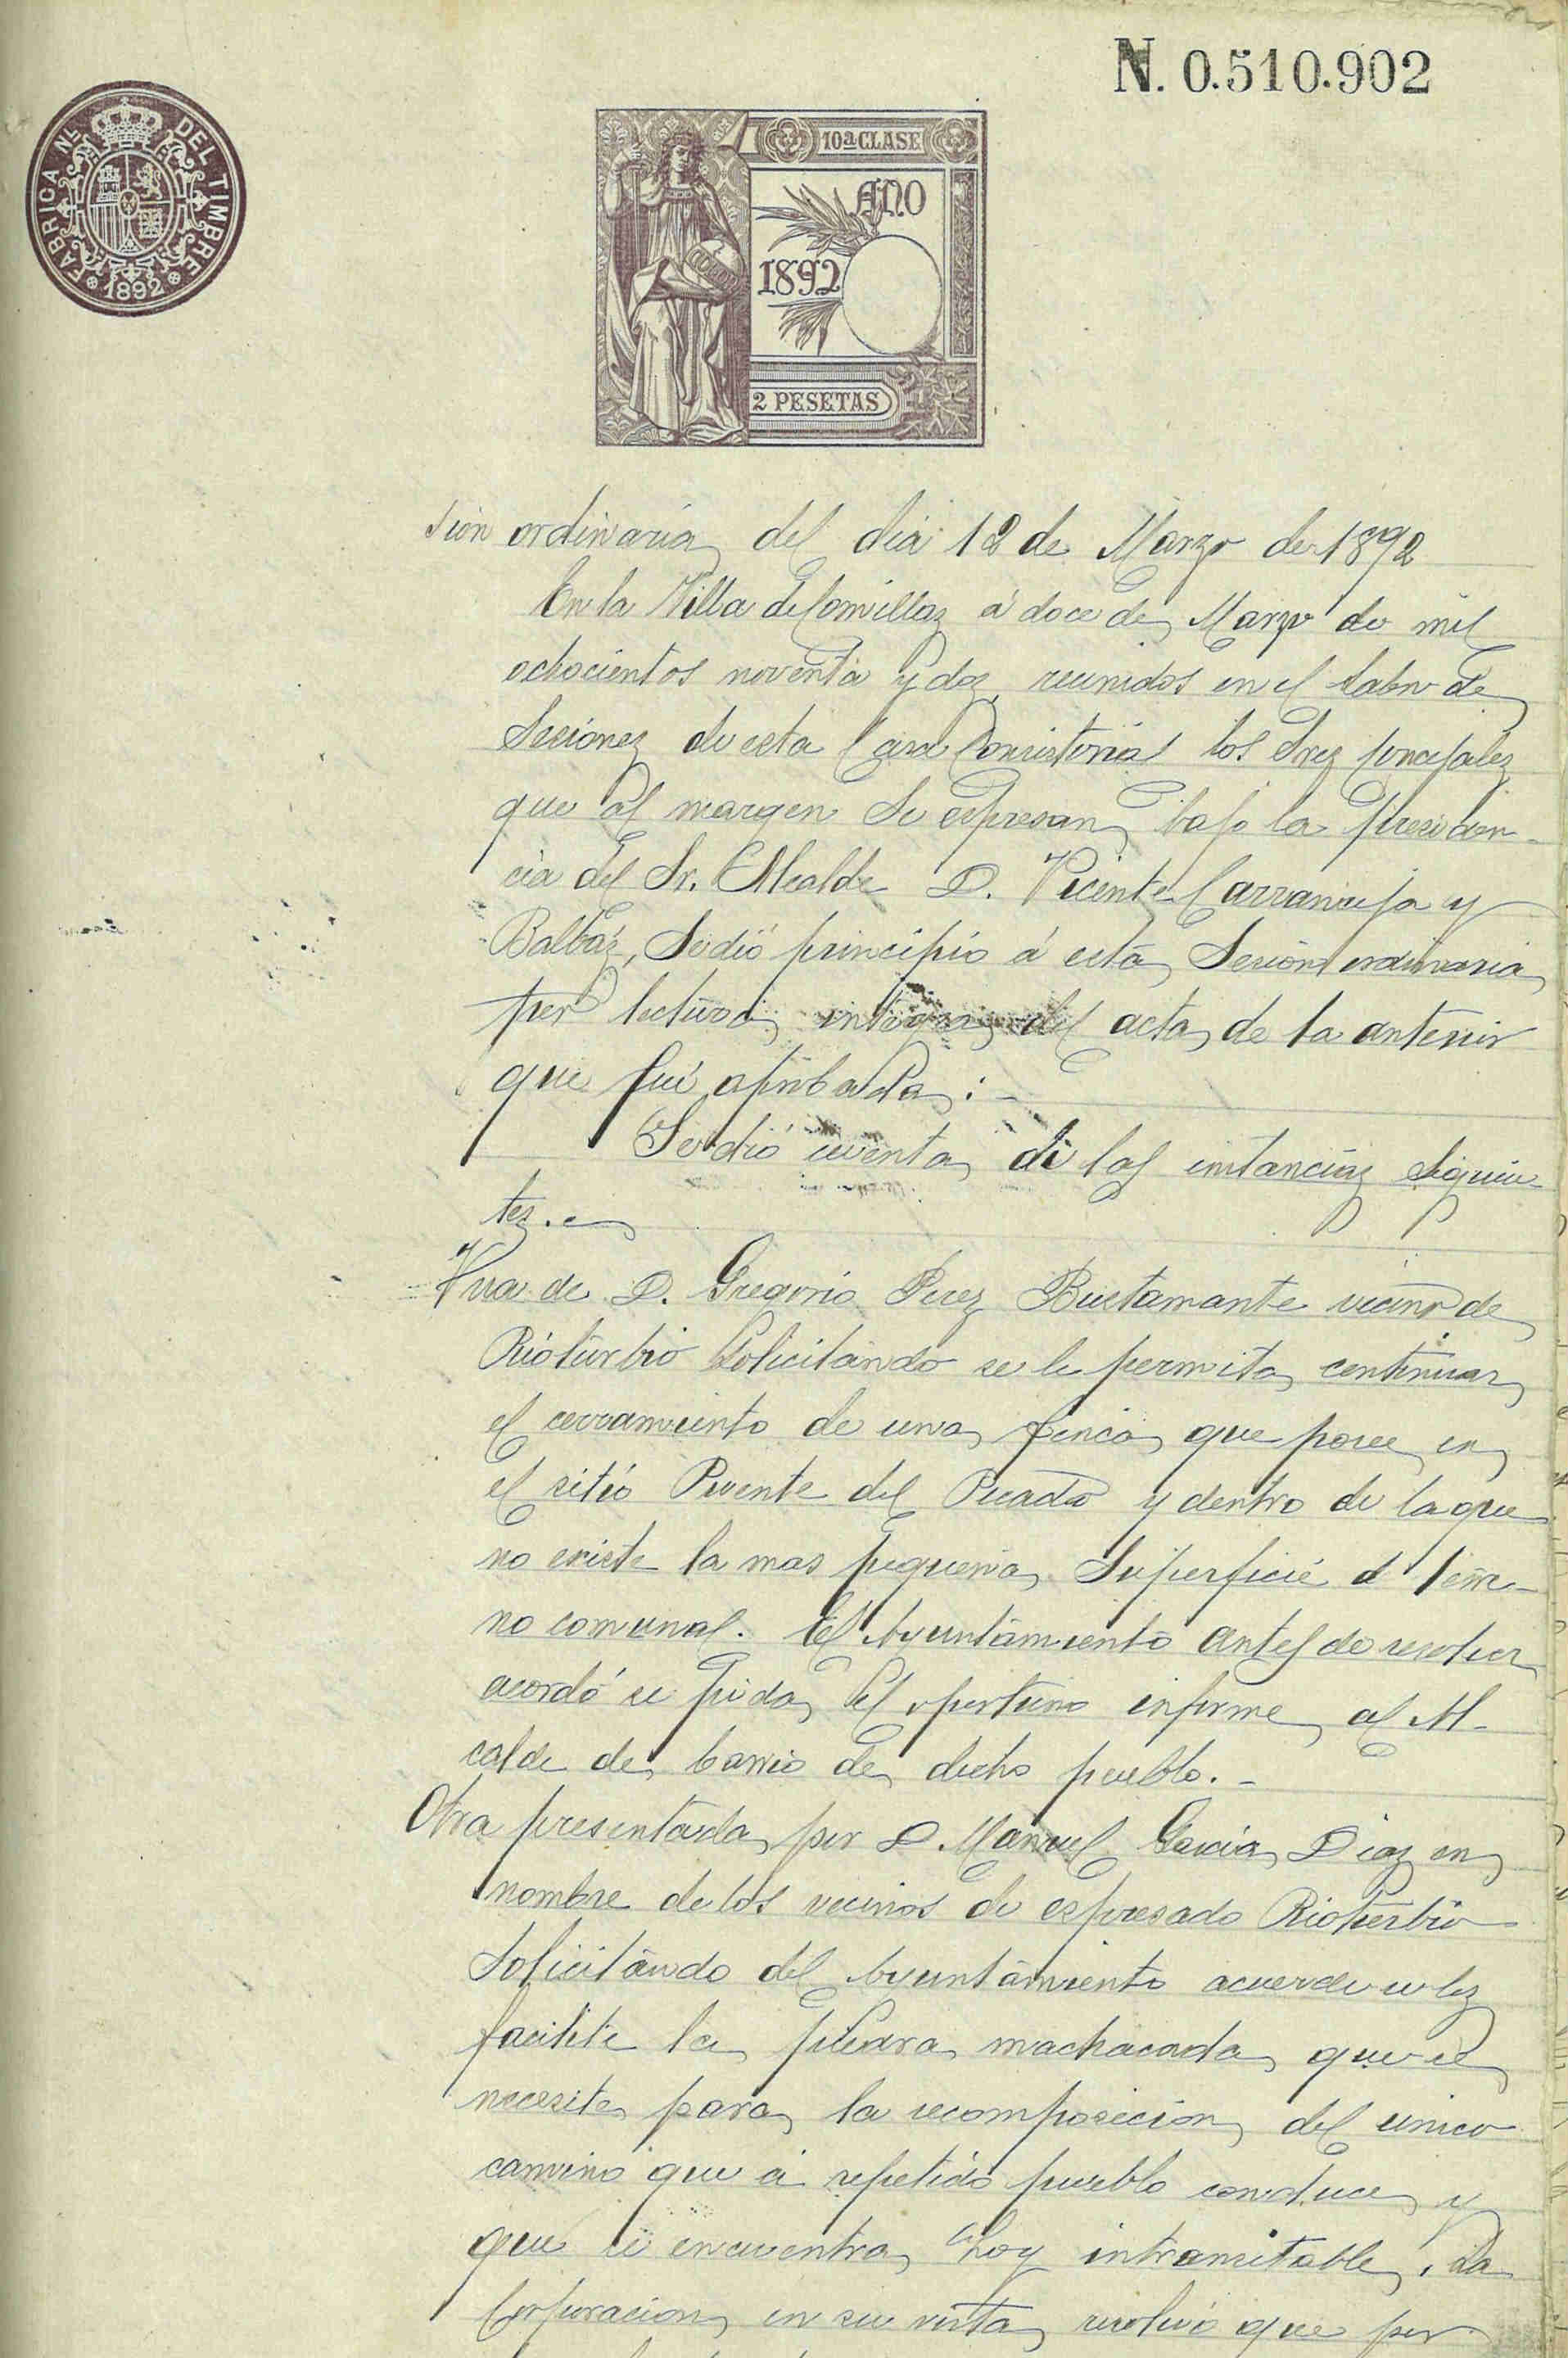 N. 0.510.902
FABRICA NL DEL TIMBRE
1892
10ª CLASE
AÑO
1892
2 PESETAS
sion ordinaria del dia 12 de Marzo de 1892
En la Villa de Comillas á doce de Marzo de mil
ochocientos noventa y dos, reunidos en el Salon de
Sesiones de esta Casa Consistorial los Sres Concejales
que al margen se espresan, bajo la presiden-
cia del Sr. Alcalde D. Vicente Carranceja y
Balbás, se dió principio á esta Sesion ordinaria
por lectura integra del acta de la anterior
que fué aprobada:-
Se dió cuenta de las instancias siguien-
tes.
Una de D. Gregorio Perez Bustamante vecino de
Rioturbio solicitando se le permita continuar
el cerramiento de una finca que posee en
el sitio Puente del Picado y dentro de la que
no existe la mas pequeña superficie d terre-
no comunal. El Ayuntamiento antes de resolver
acordó se pida el oportuno informe al Al-
calde de barrio de dicho pueblo.-
Otra presentada por D. Manuel Garcia Diaz en
nombre de los vecinos de espresado Rioturbio
solicitando del Ayuntamiento acuerde se les
facilite la piedra machacada que se
necesite para la recomposicion del unico
camino que á repetido pueblo conduce y
que se encuentra hoy intransitable. La
Corporacion en su vista resolvió que por